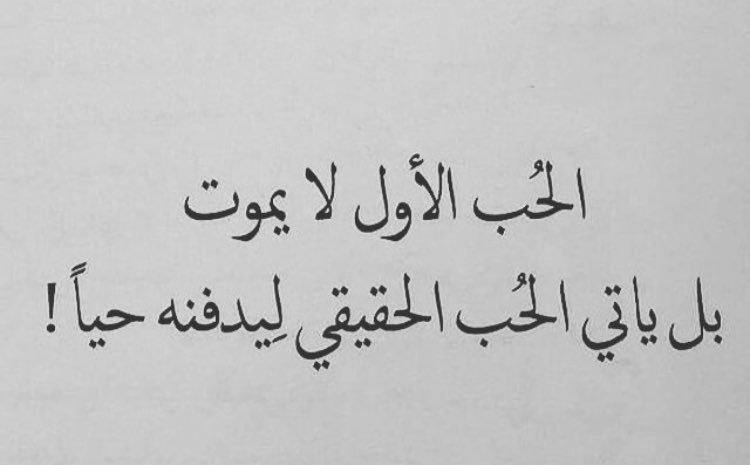 الحُب الأول لا يموت
بل ياتي الحُب الحقيقي لِيدفنه حياً !